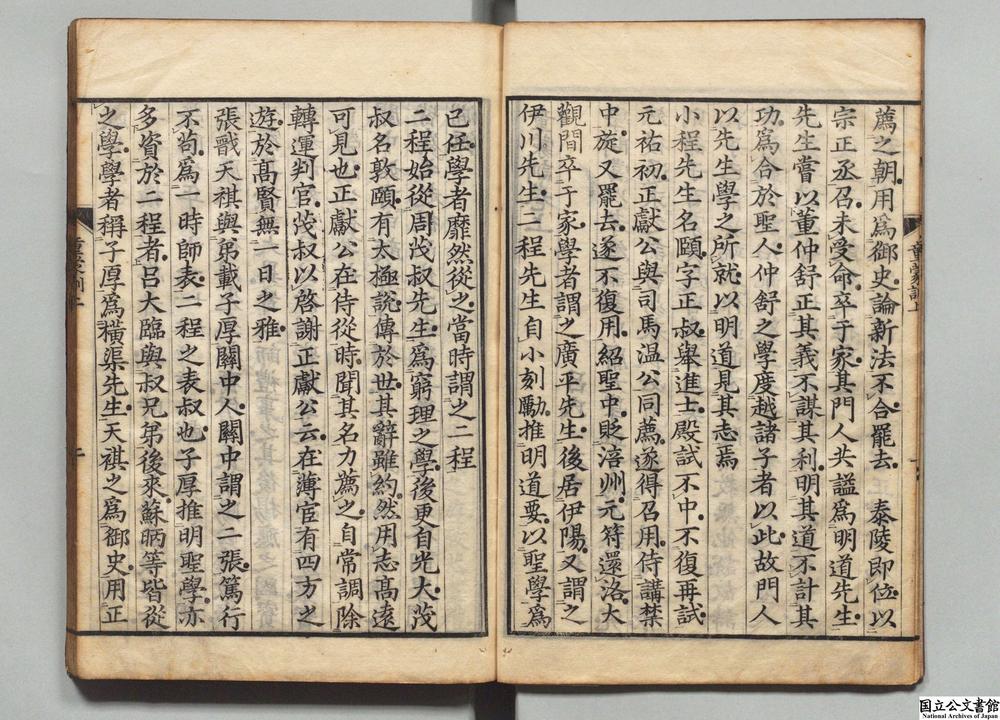 薦之朝用爲御史論新法不合罷去　泰陵即位以
宗正丞召未受命卒于家其門人共謚爲明道先生
先生嘗以董仲舒正其義不謀其利明其道不計其
功爲合於聖人仲舒之學度越諸子者以此故門人
以先生學之所就以明道見其志焉
小程先生名頤字正叔舉進士殿試不中不復再試
元祐初正獻公與司馬温公同薦遂得召用侍講禁
中旋又罷去遂不復用紹聖中貶涪州元符還洛大
觀間卒于家學者謂之廣平先生後居伊陽又謂之
伊川先生二程先生自小刻勵推明道要以聖學爲
童蒙訓上
已任學者靡然從之當時謂之二程
二程始從周茂叔先生爲窮理之學後更自光大茂
叔名敦頤有太極說傳於世其辭雖約然用志髙遠
可見也正獻公在侍從時聞其名力薦之自常調除
轉運判官茂叔以啓謝正獻公云在薄宦有四方之
遊於髙賢無一日之雅
張戩天祺與弟載子厚關中人關中謂之二張篤行
不苟爲一時師表二程之表叔也子厚推明聖學亦
多資於二程者吕大臨與叔兄弟後來蘇昞等皆從
之學學者稱子厚爲橫渠先生天祺之爲御史用正
国立公文書館
National Archives of Japan